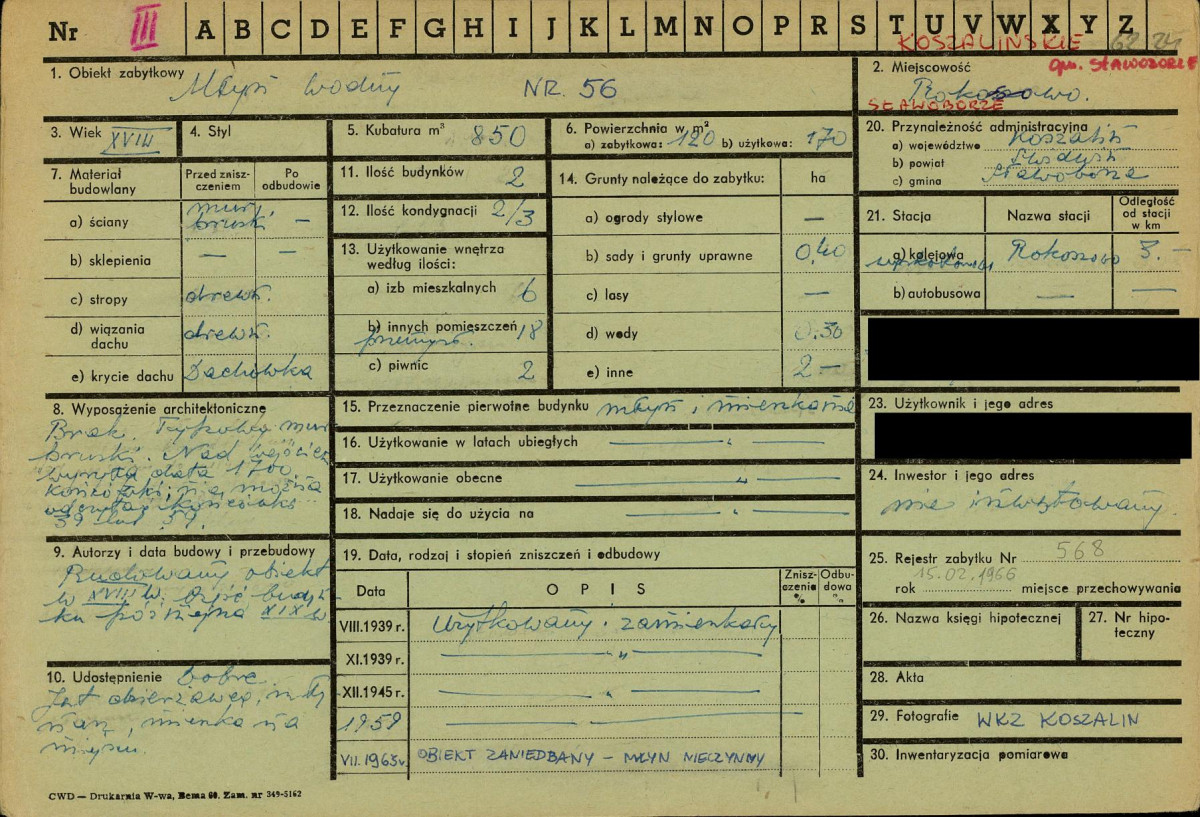 Nr III A B C D E F G H I J K L M N O P R S T U V W X Y Z
KOSZALIŃSKIE 62 24
gm. SŁAWOBORZE
1. Obiekt zabytkowy Młyn wodny NR. 56
2. Miejscowość
Rokosowo.
SŁAWOBORZE
3. Wiek XVIII
4. Styl
5. Kubatura m³ 850
6. Powierzchnia w m²
a) zabytkowa: 120 b) użytkowa: 170
20. Przynależność administracyjna
a) województwo Koszalin
b) powiat
c) gmina Sławoborze
7. Materiał budowlany
Przed zniszczeniem
Po odbudowie
a) ściany mur, pruski. —
b) sklepienia — —
c) stropy drewn.
d) wiązania dachu drewn.
e) krycie dachu Dachówka
11. Ilość budynków 2
12. Ilość kondygnacji 2/3
13. Użytkowanie wnętrza według ilości:
a) izb mieszkalnych 6
b) innych pomieszczeń 18
przemysł.
c) piwnic 2
14. Grunty należące do zabytku: ha
a) ogrody stylowe —
b) sady i grunty uprawne 0,40
c) lasy —
d) wody 0.30
e) inne 2 —
21. Stacja
Nazwa stacji
Odległość od stacji w km
a) kolejowa Rokosowo 3.—
wąskotorowa
b) autobusowa — —
8. Wyposażenie architektoniczne
Brak. Typowy mur
pruski. Nad wejściem
wyryta data 1700.
końcówki nie można
odczytać końcówki
39 lub 59.
15. Przeznaczenie pierwotne budynku młyn i mieszkanie
16. Użytkowanie w latach ubiegłych — " —
17. Użytkowanie obecne — " —
18. Nadaje się do użycia na — " —
23. Użytkownik i jego adres
24. Inwestor i jego adres
nie inwestowany.
9. Autorzy i data budowy i przebudowy
Budowany obiekt
w XVIII w. Część budyn
ku późniejsza XIX w.
19. Data, rodzaj i stopień zniszczeń i odbudowy
Data
OPIS
Zniszczenia %
Odbudowa %
VIII.1939 r. Użytkowany i zamieszkały
XI.1939 r. — " —
XII.1945 r. — " —
1959 — " —
VII.1963 r. OBIEKT ZANIEDBANY – MŁYN NIECZYNNY
25. Rejestr zabytku Nr 568
15.02.1966
rok miejsce przechowywania
26. Nazwa księgi hipotecznej
27. Nr hipoteczny
28. Akta
10. Udostępnienie Dobre.
Jest dzierżawca,
mieszka na
miejscu.
29. Fotografie WKZ KOSZALIN
30. Inwentaryzacja pomiarowa
CWD — Drukarnia W-wa, Bema 60. Zam. nr 349-5162